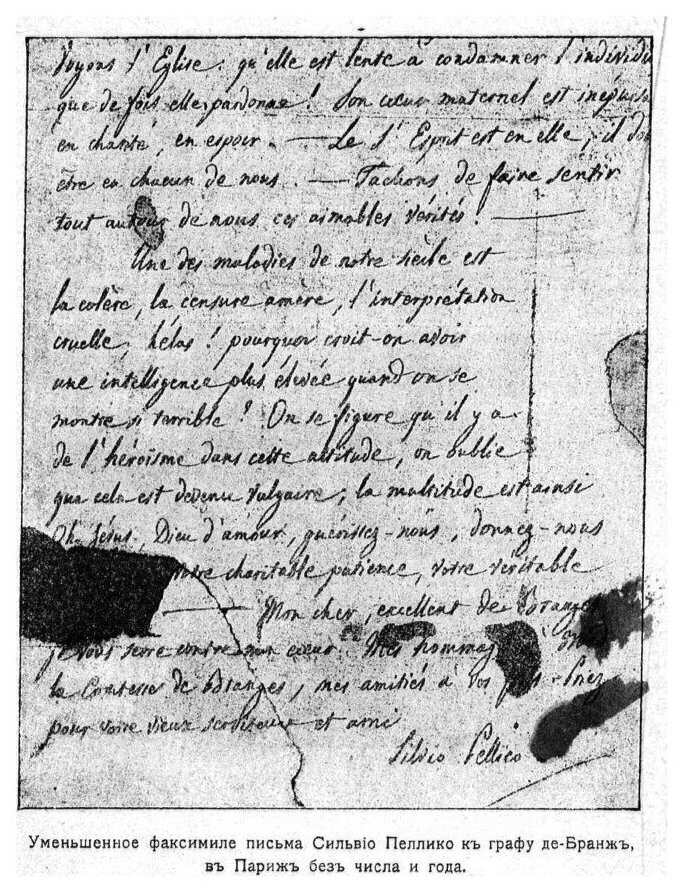 Voyons l'Eglise: qu'elle est lente à condamner l'individu
que de fois elle pardonne! Son cœur maternel est
en charité, en espoir. — Le St Esprit est en elle, il
être en chacun de nous. — Tachons de faire sentir
tout autour de nous ces aimables vérités! —
Une des maladies de notre siècle est
la colère, la censure amère, l'interprétation
cruelle, hélas! pourquoi croit-on avoir
une intelligence plus élevée quand on se
montre si terrible? On se figure qu'il y a
de l'héroïsme dans cette attitude, on oublie
que cela est devenu vulgaire; la multitude est ainsi
Oh Jésus, Dieu d'amour, guérissez-nous, donnez-nous
votre charitable patience, votre véritable
— Mon cher, excellent de Branges
je vous serre contre mon cœur. Mes à
la Comtesse de Branges, mes amitiés à vos
pour votre vieux serviteur et ami
Silvio Pellico
Уменьшенное факсимиле письма Сильвіо Пеллико къ графу де-Бранжъ,
въ Парижъ безъ числа и года.